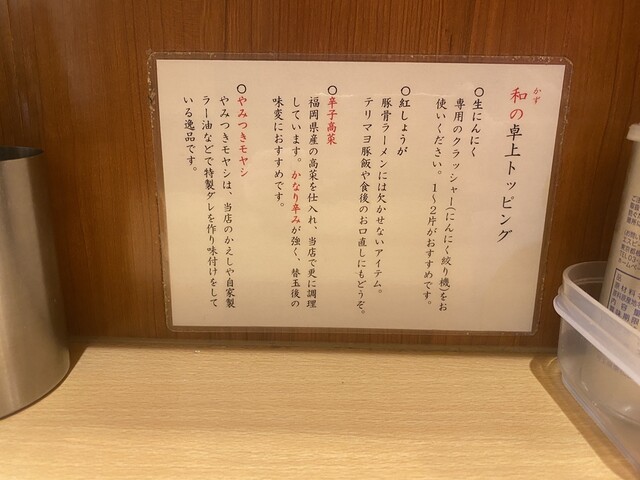 かず
和の卓上トッピング
○生にんにく
専用のクラッシャー(にんにく絞り機)をお
使いください。1~2片がおすすめです。
○紅しょうが
豚骨ラーメンには欠かせないアイテム。
テリマヨ豚飯や食後のお口直しにもどうぞ。
○辛子高菜
福岡県産の高菜を仕入れ、当店で更に調理
しています。かなり辛みが強く、替玉後の
味変におすすめです。
○やみつきモヤシ
やみつきモヤシは、当店のかえしや自家製
ラー油などで特製ダレを作り味付けをして
いる逸品です。